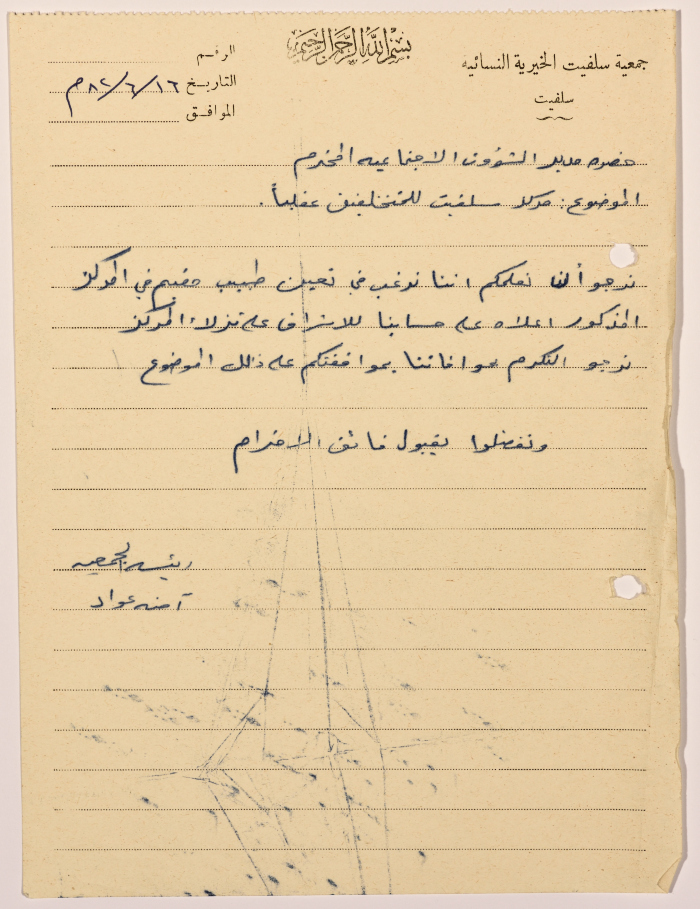 بسم الله الرحمن الرحيم
جمعية سلفيت الخيرية النسائيه
سلفيت
الرقم
التاريخ ١٦/٦/٨٢م
الموافق
حضرة مدير الشؤون الاجتماعيه المحترم
الموضوع: مركز سلفيت للمتخلفين عقلياً.
نرجو أن نعلمكم اننا نرغب في تعين طبيب مقيم في المركز
المذكور اعلاه على حسابنا للاشراف على نزلاء المركز
نرجو التكرم بموافاتنا بموافقتكم على ذلك الموضوع
وتفضلوا بقبول فائق الاحترام
رئيسة الجمعيه
آمنه عواد